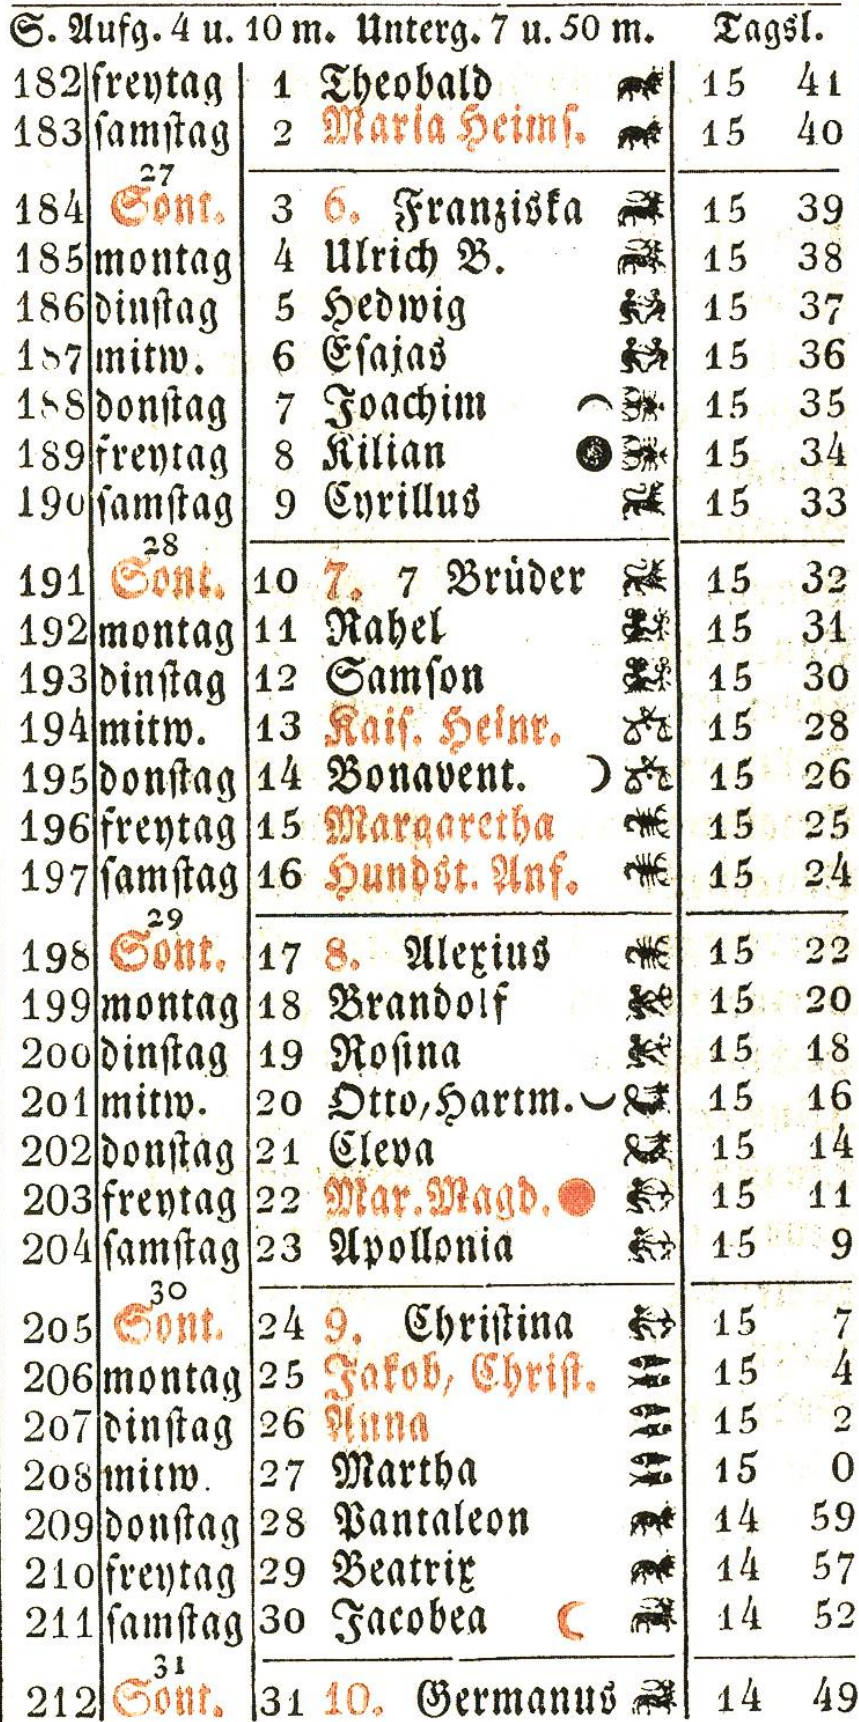 S. Aufg. 4 u. 10 m. Unterg. 7 u. 50 m. Tagsl.
182 freytag 1 Theobald 15 41
183 samstag 2 Maria Heims. 15 40
27
184 Sont. 3 6. Franziska 15 39
185 montag 4 Ulrich B. 15 38
186 dinstag 5 Hedwig 15 37
187 mitw. 6 Esajas 15 36
188 donstag 7 Joachim 15 35
189 freytag 8 Kilian 15 34
190 samstag 9 Cyrillus 15 33
28
191 Sont. 10 7. 7 Brüder 15 32
192 montag 11 Rahel 15 31
193 dinstag 12 Samson 15 30
194 mitw. 13 Kais. Heinr. 15 28
195 donstag 14 Bonavent. 15 26
196 freytag 15 Margaretha 15 25
197 samstag 16 Hundst. Anf. 15 24
29
198 Sont. 17 8. Alexius 15 22
199 montag 18 Brandolf 15 20
200 dinstag 19 Rosina 15 18
201 mitw. 20 Otto, Hartm. 15 16
202 donstag 21 Cleva 15 14
203 freytag 22 Mar. Magd. 15 11
204 samstag 23 Apollonia 15 9
30
205 Sont. 24 9. Christina 15 7
206 montag 25 Jakob, Christ. 15 4
207 dinstag 26 Anna 15 2
208 mitw. 27 Martha 15 0
209 donstag 28 Pantaleon 14 59
210 freytag 29 Beatrix 14 57
211 samstag 30 Jacobea 14 52
31
212 Sont. 31 10. Germanus 14 49